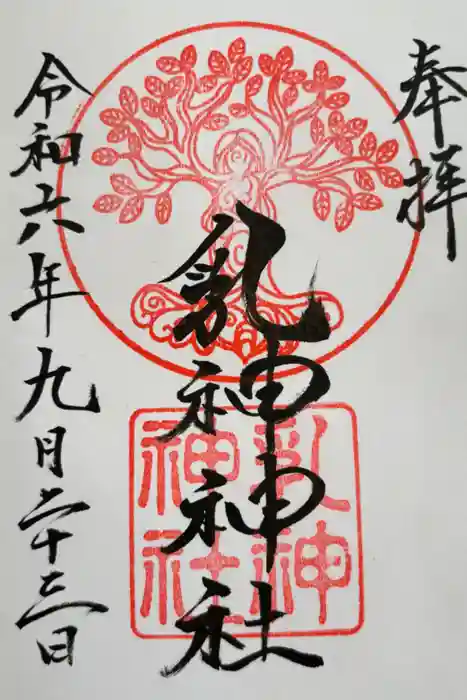 奉拝
乳神神社
乳神
神社
令和六年九月二十三日